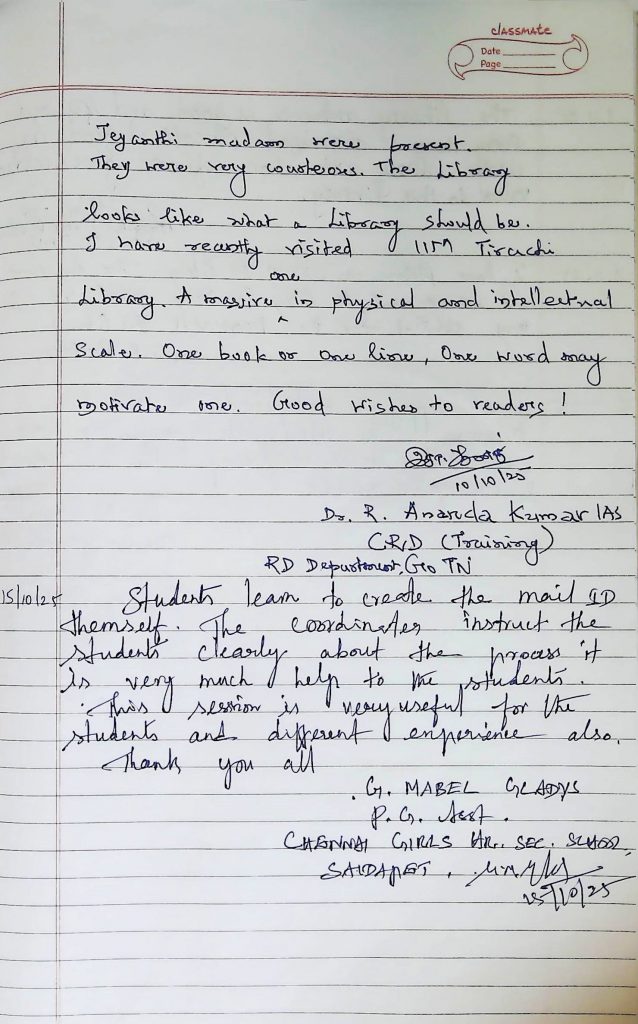 classmate
Date
Page
Jeyanthi madam were present.
They were very courteous. The Library
looks like what a Library should be.
I have recently visited IIM Tiruchi
one
Library. A massive ^ in physical and intellectual
scale. One book or one line, One word may
motivate one. Good wishes to readers!
10/10/25
Dr. R. Ananda Kumar IAS
CRD (Training)
RD Department, Go TN
15/10/25 Students learn to create the mail ID
themself. The coordinates instruct the
students clearly about the process it
is very much help to the students.
This session is very useful for the
students and different experience also.
Thank you all
G. MABEL GLADYS
P. G. Asst.
CHENNAI GIRLS HR. SEC. SCHOOL,
SAIDAPET.
15/10/25